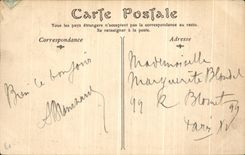 Carte Postale
Tous les pays étrangers n'acceptent pas la correspondance au recto.
Se renseigner à la poste.
Correspondance
Adresse
Bien le bonjour
Mademoiselle
Marguerite Blondel
99 R Blomet 99
Paris